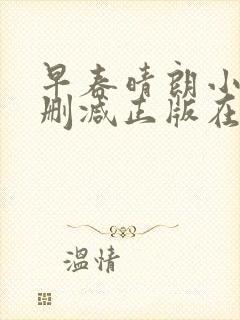 早春晴朗小
删减正版在
温情